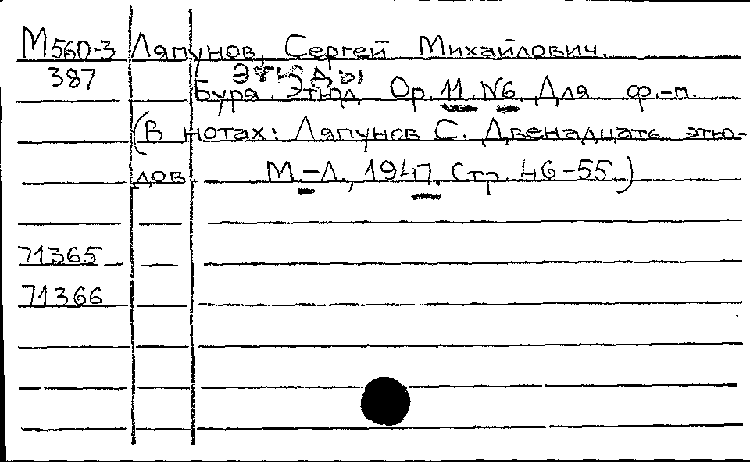 М560-3 Ляпунов, Сергей Михайлович.
387 ЭТЮДЫ
Буря. Этюд Op. 11. №6. Для ф.-п.
(В нотах: Ляпунов С. Двенадцать этю-
дов М.-Л., 1947. Стр. 46-55.)
71365
71366